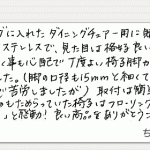 グに入れたダイニングチェアー用に購
ステンレスで、見た目は
く事も心配で丁度よい椅子脚カ
した。(脚の口径も15mmと細くて
で苦労しましたが) 取付は簡単
もためらっていた椅子はフローリング
と感動！良い商品をありがとう